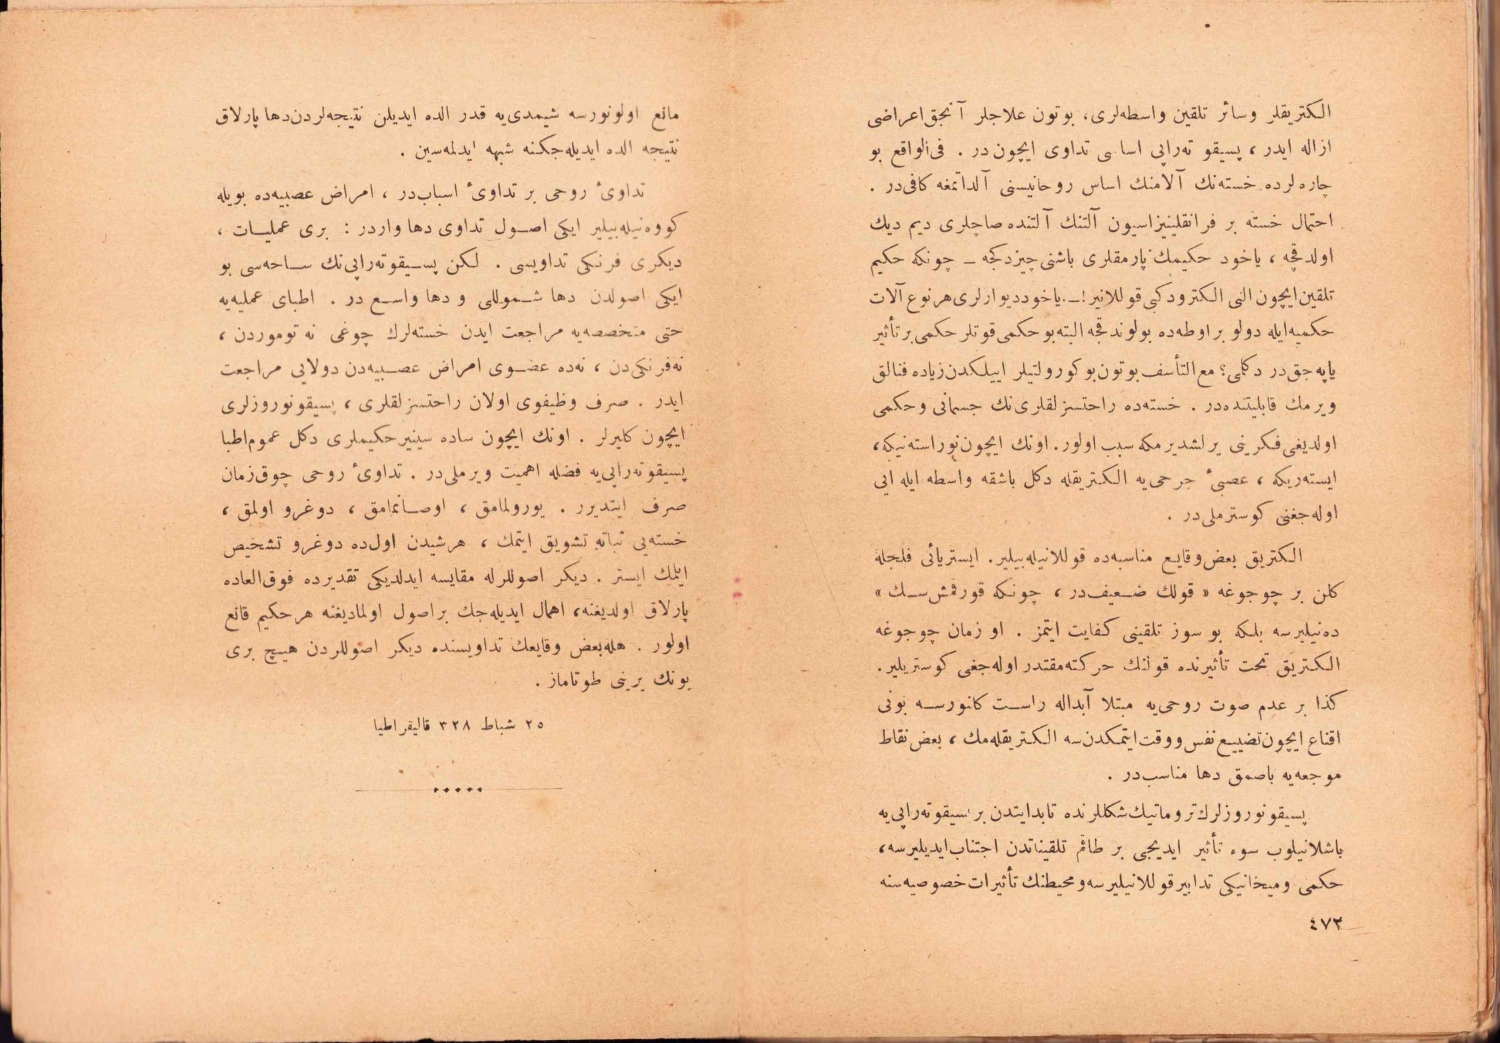 الكتریقلر وسائر تلقین واسطه‌لری، بوتون علاجلر آنجق اعراضی
ازاله ایدر ، پسیقو ته‌راپی اساسی تداوی ایچون در . فی‌الواقع بو
چاره‌لرده خسته‌نك آلامنك اساس روحانیسنی آلداتمغه كافی‌در .
احتمال خسته بر فرانقلینیزاسیون آلتنك آلتنده صاچلری دیم دیك
اولدقچه ، یاخود حكیمك پارمقلری باشنی چیزدكجه ــ چونكه حكیم
تلقین ایچون الی الكترود كبی قوللانیر! ــ یاخود دیوارلری هر نوع آلات
حكمیه ایله دولو بر اوطه‌ده بولوندقجه البته بو حكمی قوتلر حكمی بر تأثیر
یاپه‌جق‌در دكلمی؟ مع‌التأسف بوتون بو كورولتیلر اییلكدن زیاده فنالق
ویرمك قابلیتنده‌در . خسته‌ده راحتسزلقلری‌نك جسمانی وحكمی
اولدیغی فكرینی یرلشدیرمكه سبب اولور. اونك ایچون نوراسته‌نیكه،
ایسته‌ریكه ، عصبیٔ جرحی‌یه الكتریقله دكل باشقه واسطه ایله ایی
اوله‌جغنی كوسترملی‌در .
الكتریق بعض وقایع مناسبه‌ده قوللانیله‌بیلیر. ایستریائی فلجله
كلن بر چوجوغه « قولك ضعیف‌در ، چونكه قورقمش‌سك »
ده‌نیلیرسه بلكه بو سوز تلقینی كفایت ایتمز . او زمان چوجوغه
الكتریق تحت تأثیرنده قولنك حركته مقتدر اوله‌جغی كوستریلیر.
كذا بر عدم صوت روحی‌یه مبتلا آبداله راست كلنورسه بونی
اقناع ایچون تضییع نفس ووقت ایتمكدن‌سه الكتریقله‌مك ، بعض نقاط
موجعه‌یه باصمق دها مناسب‌در .
پسیقونوروزلرك تروماتیك شكللرنده تا بدایتدن بر پسیقوته‌راپی‌یه
باشلانیلوب سوء تأثیر ایدیجی بر طاقم تلقیناتدن اجتناب ایدیلیرسه،
حكمی ومیخانیكی تدابیر قوللانیلیرسه ومحیطنك تأثیرات خصوصیه‌سنه
٤٧٣
مانع اولونورسه شیمدی‌یه قدر الده ایدیلن نتیجه‌لردن دها پارلاق
نتیجه الده ایدیله‌جكنه شبهه ایدلمه‌سین .
تداویٔ روحی بر تداویٔ اسباب‌در ، امراض عصبیه‌ده بویله
كووه‌نیله‌بیلیر ایكی اصول تداوی دها واردر : بری عملیات ،
دیكری فرنكی تداویسی . لكن پسیقوته‌راپی‌نك ساحه‌سی بو
ایكی اصولدن دها شموللی و دها واسع در . اطبای عملیه‌یه
حتی متخصصه‌یه مراجعت ایدن خسته‌لرك چوغی نه توموردن ،
نه‌فرنكی‌دن ، نه‌ده عضوی امراض عصبیه‌دن دولایی مراجعت
ایدر . صرف وظیفوی اولان راحتسزلقلری ، پسیقونوروزلری
ایچون كلیرلر . اونك ایچون ساده سینیر حكیملری دكل عموم اطبا
پسیقوته‌راپی‌یه فضله اهمیت ویرملی‌در . تداویٔ روحی چوق زمان
صرف ایتدیرر . یورولمامق ، اوصانمامق ، دوغرو اولمق ،
خسته‌یی ثباته تشویق ایتمك ، هرشیدن اول‌ده دوغرو تشخیص
ایتمك ایستر . دیكر اصوللرله مقایسه ایدلدیكی تقدیرده فوق‌العاده
پارلاق اولدیغنه، اهمال ایدیله‌جك بر اصول اولمادیغنه هر حكیم قانع
اولور . هله‌بعض وقایعك تداویسنده دیكر اصوللردن هیچ بری
بونك یرینی طوتاماز .
٢٥ شباط ٣٢٨ قالیفراطیا